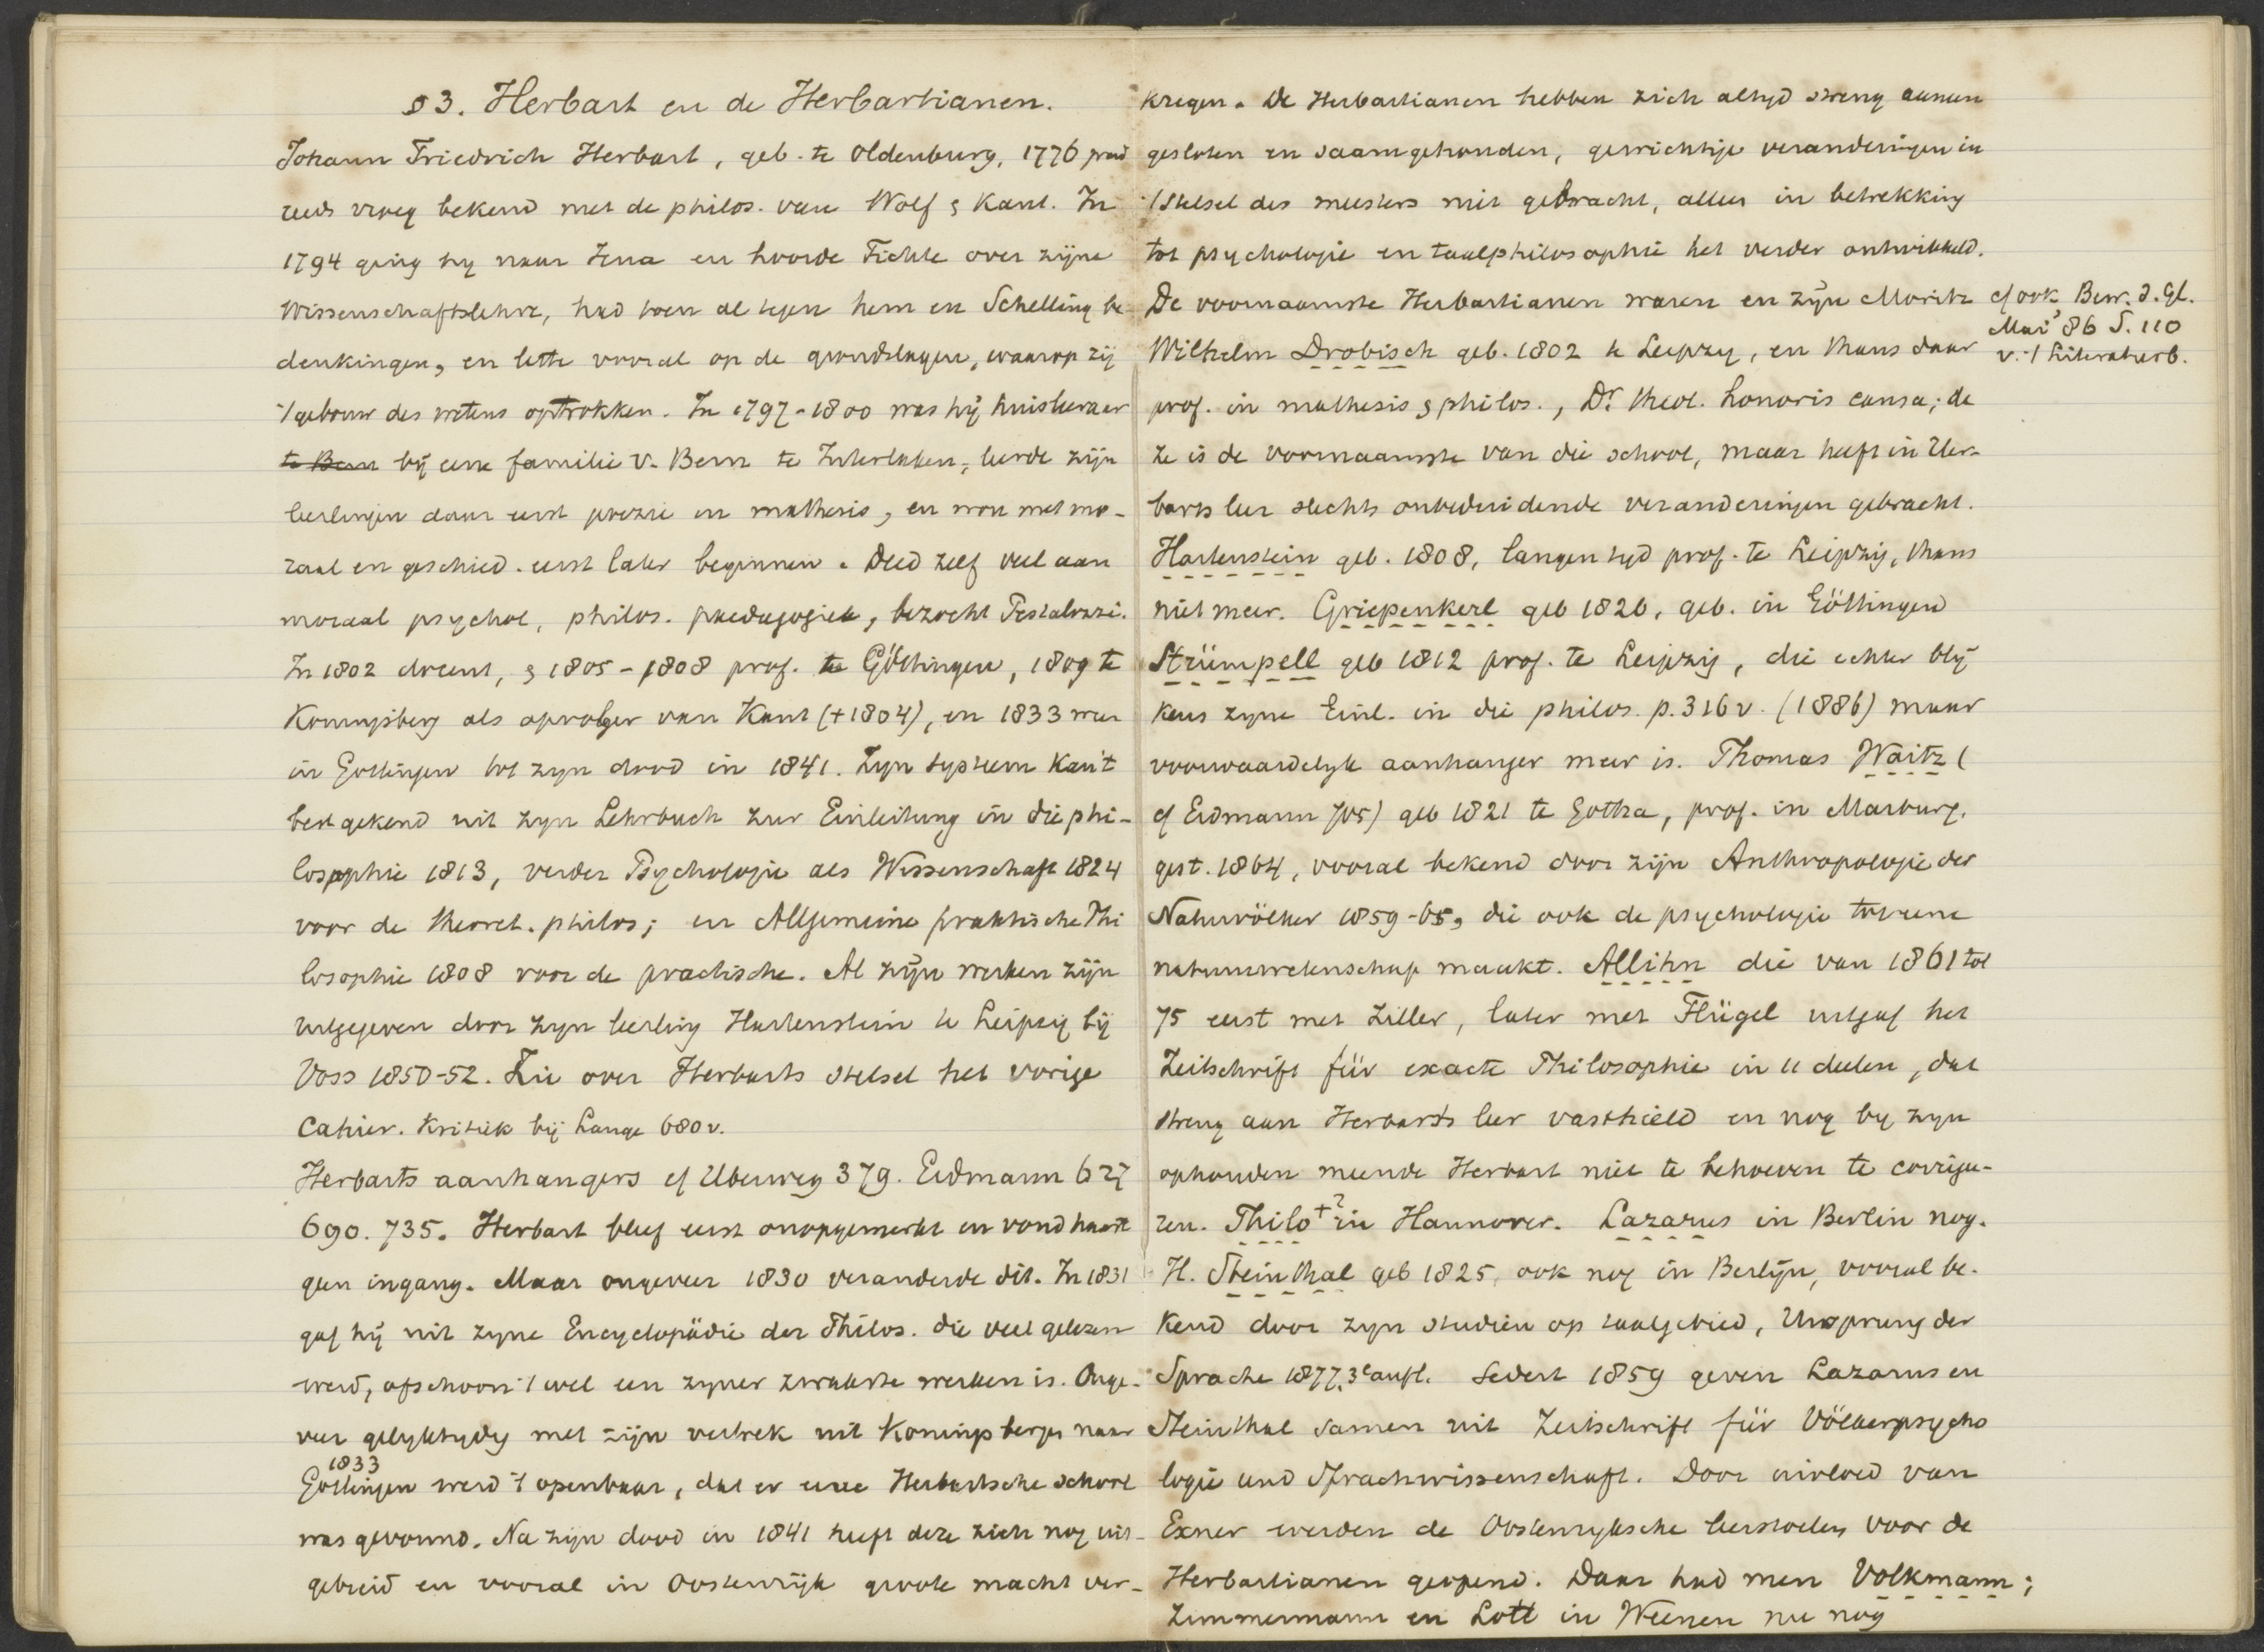 § 3. Herbart en de Herbartianen.
Johann Friedrich Herbart, geb. te Oldenburg, 1776 werd
reeds vroeg bekend met de philos. van Wolf & Kant. In
1794 ging hij naar Jena en hoorde Fichte over zijne
Wissenschaftslehre, had toen al tegen hem en Schelling be-
denkingen, en lette vooral op de grondslagen, waarop zij
't gebouw des wetens optrokken. In 1797-1800 was hij huisleeraar
te Bern bij eene familie v. Bern te Interlaken, leerde zijn
leerlingen daar eerst poëzie en mathesis, en wou met mo-
raal en geschied. eerst later beginnen. Deed zelf veel aan
moraal psychol, philos. paedagogiek, bezocht Pestalozzi.
In 1802 docent, & 1805-1808 prof. te Göttingen, 1809 te
Koningsberg als opvolger van Kant (+1804), en 1833 weer
in Gottingen tot zijn dood in 1841. Zijn systeem kan 't
best gekend uit zijn Lehrbuch zur Einleitung in die phi-
losophie 1813, verder Psychologie als Wissenschaft 1824
voor de theoret. philos; en Allgemeine praktische Phi
losophie 1808 voor de practische. Al zijn werken zijn
uitgegeven door zijn leerling Hartenstein te Leipzig bij
Voss 1850-52. Zie over Herbarts stelsel het vorige
Cahier. Kritiek bij Lange 680 v.
Herbarts aanhangers cf Uberweg 379. Erdmann 627
690. 735. Herbart bleef eerst onopgemerkt en vond haast
geen ingang. Maar ongeveer 1830 veranderde dit. In 1831
gaf hij uit zijne Encyclopädie der Philos. die veel gelezen
werd, ofschoon 't wel een zijner zwakste werken is. Onge-
veer gelijktijdig met zijn vertrek uit Koningsbergen naar
1833
Gottingen werd 't openbaar, dat er eene Herbartsche school
was gevormd. Na zijn dood in 1841 heeft deze zich nog uit-
gebreid en vooral in Oostenrijk groote macht ver-
kregen. De Herbartianen hebben zich altijd streng aaneen
gesloten en saamgehouden, gewichtige veranderingen in
't stelsel des meesters niet gebracht, alleen in betrekking
tot psychologie en taalphilosophie het verder ontwikkeld.
De voornaamste Herbartianen waren en zijn Moritz
cf ook Bew. d. Gl.
Mai '86 S. 110
v. 't Literaturb.
Wilhelm Drobisch geb. 1802 te Leipzig, en thans daar
prof. in mathesis & philos., Dr. theol. honoris causa; de
ze is de voornaamste van die school, maar heeft in Her-
barts leer slechts onbeduidende veranderingen gebracht.
Hartenstein geb. 1808, langen tijd prof. te Leipzig, thans
niet meer. Griepenkerl geb 1826, geb. in Göttingen
Strümpell geb 1812 prof. te Leipzig, die echter blij
kens zijne Einl. in die philos. p. 316 v. (1886) maar
voorwaardelijk aanhanger meer is. Thomas Waitz (
cf Erdmann 705) geb 1821 te Gotha, prof. in Marburg,
gest. 1864, vooral bekend door zijn Anthropologie der
Naturvölker 1859-65, die ook de psychologie tot eene
natuurwetenschap maakt. Allihn die van 1861 tot
75 eerst met Ziller, later met Flügel uitgaf het
Zeitschrift für exacte Philosophie in 11 deelen, dat
streng aan Herbarts leer vasthield en nog bij zijn
ophouden meende Herbart niet te behoeven te corrige-
ren. Thilo +? in Hannover. Lazarus in Berlin nog.
H. Steinthal geb 1825, ook nog in Berlijn, vooral be-
kend door zijn studien op taalgebied, Ursprung der
Sprache 1877, 3e aufl. Sedert 1859 geven Lazarus en
Steinthal samen uit Zeitschrift für Völkerpsycho
logie und Sprachwissenschaft. Door invloed van
Exner werden de Oostenrijksche leerstoelen voor de
Herbartianen geopend. Daar had men Volkmann;
Zimmermann en Lott in Weenen nu nog